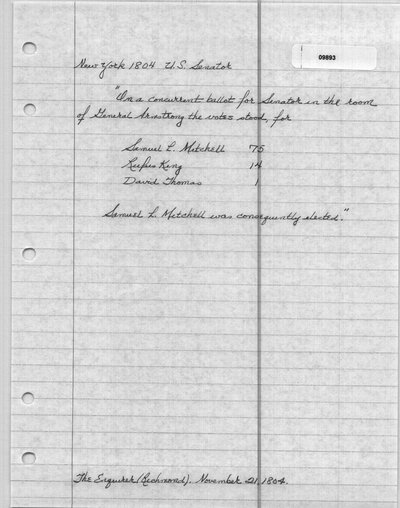 09893
New York 1804 U.S. Senator
"On a concurrent ballot for Senator in the room
of General Armstrong the votes stood, for
Samuel L. Mitchell 75
Rufus King 14
David Thomas 1
Samuel L. Mitchell was consequently elected."
The Enquirer (Richmond). November 21, 1804.